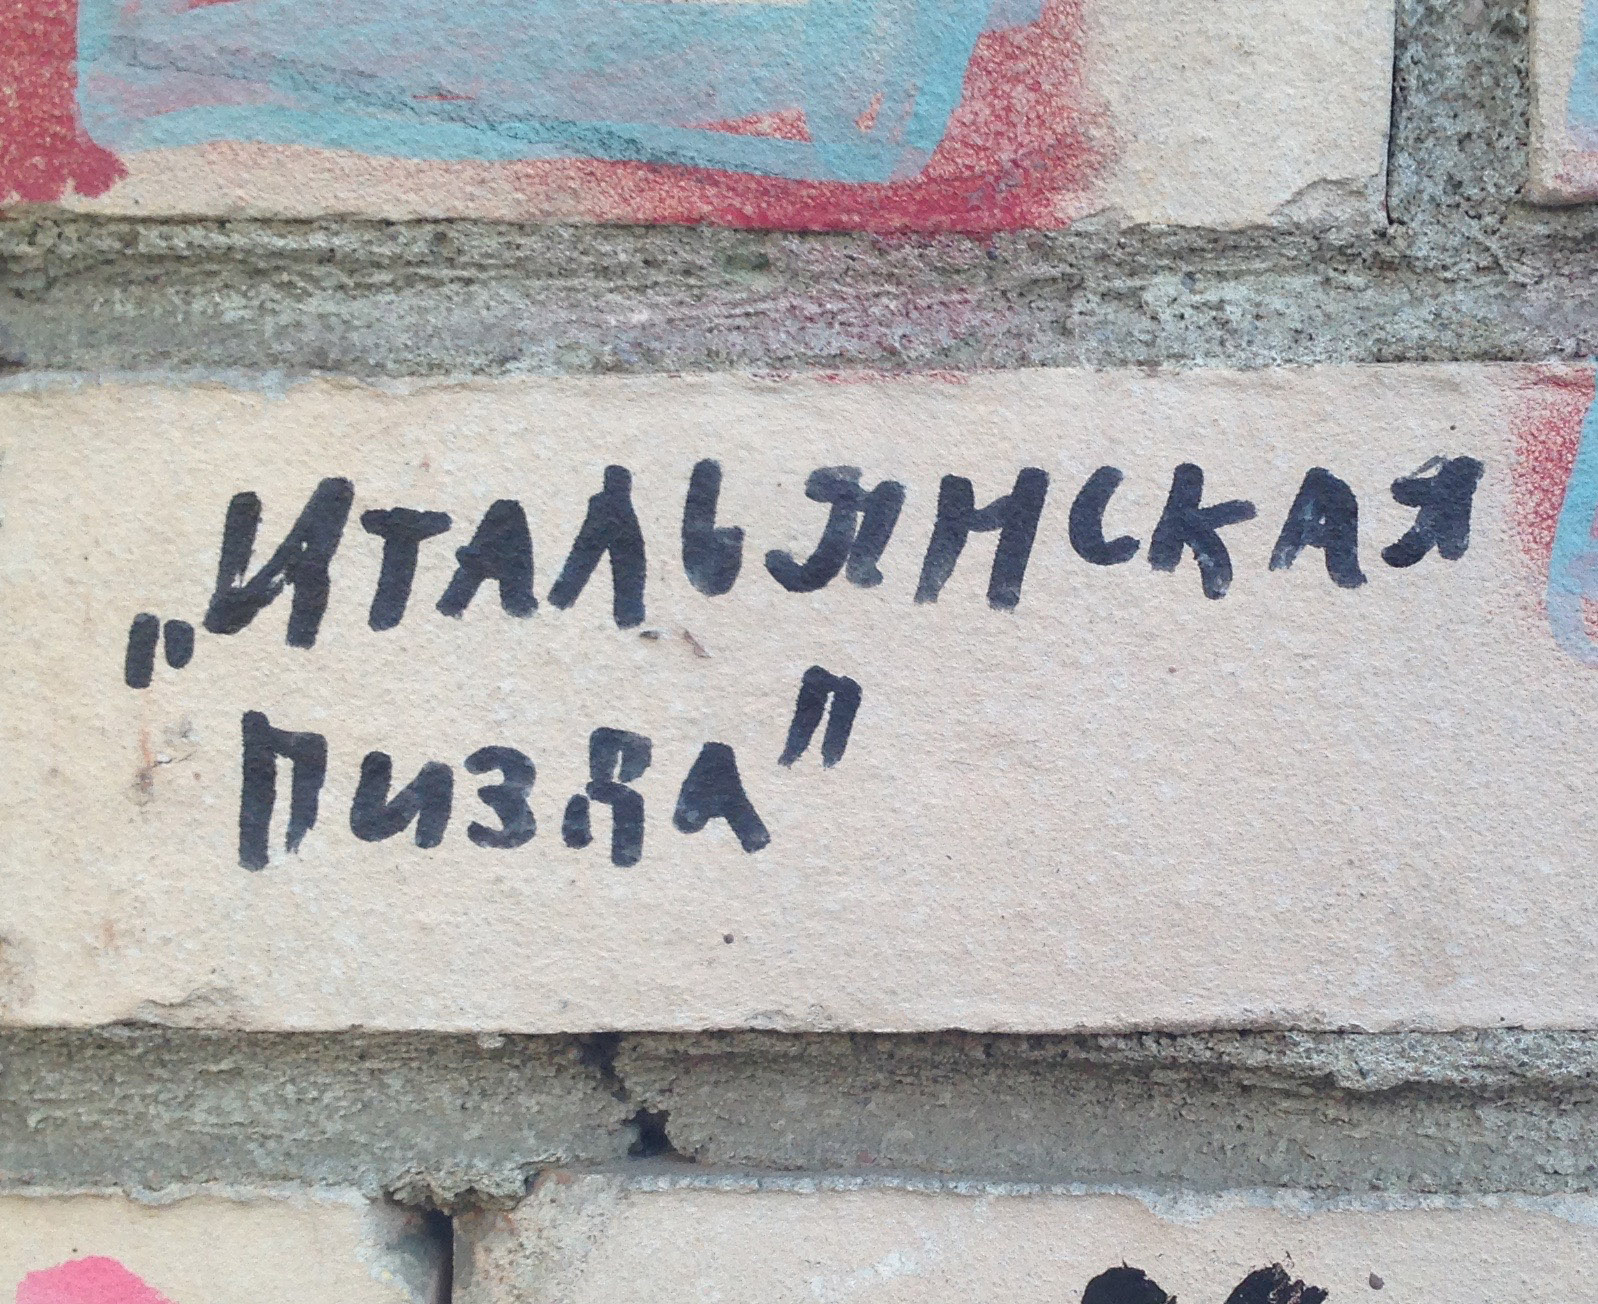 „ИТАЛЬЯНСКАЯ
ПИЗДА"